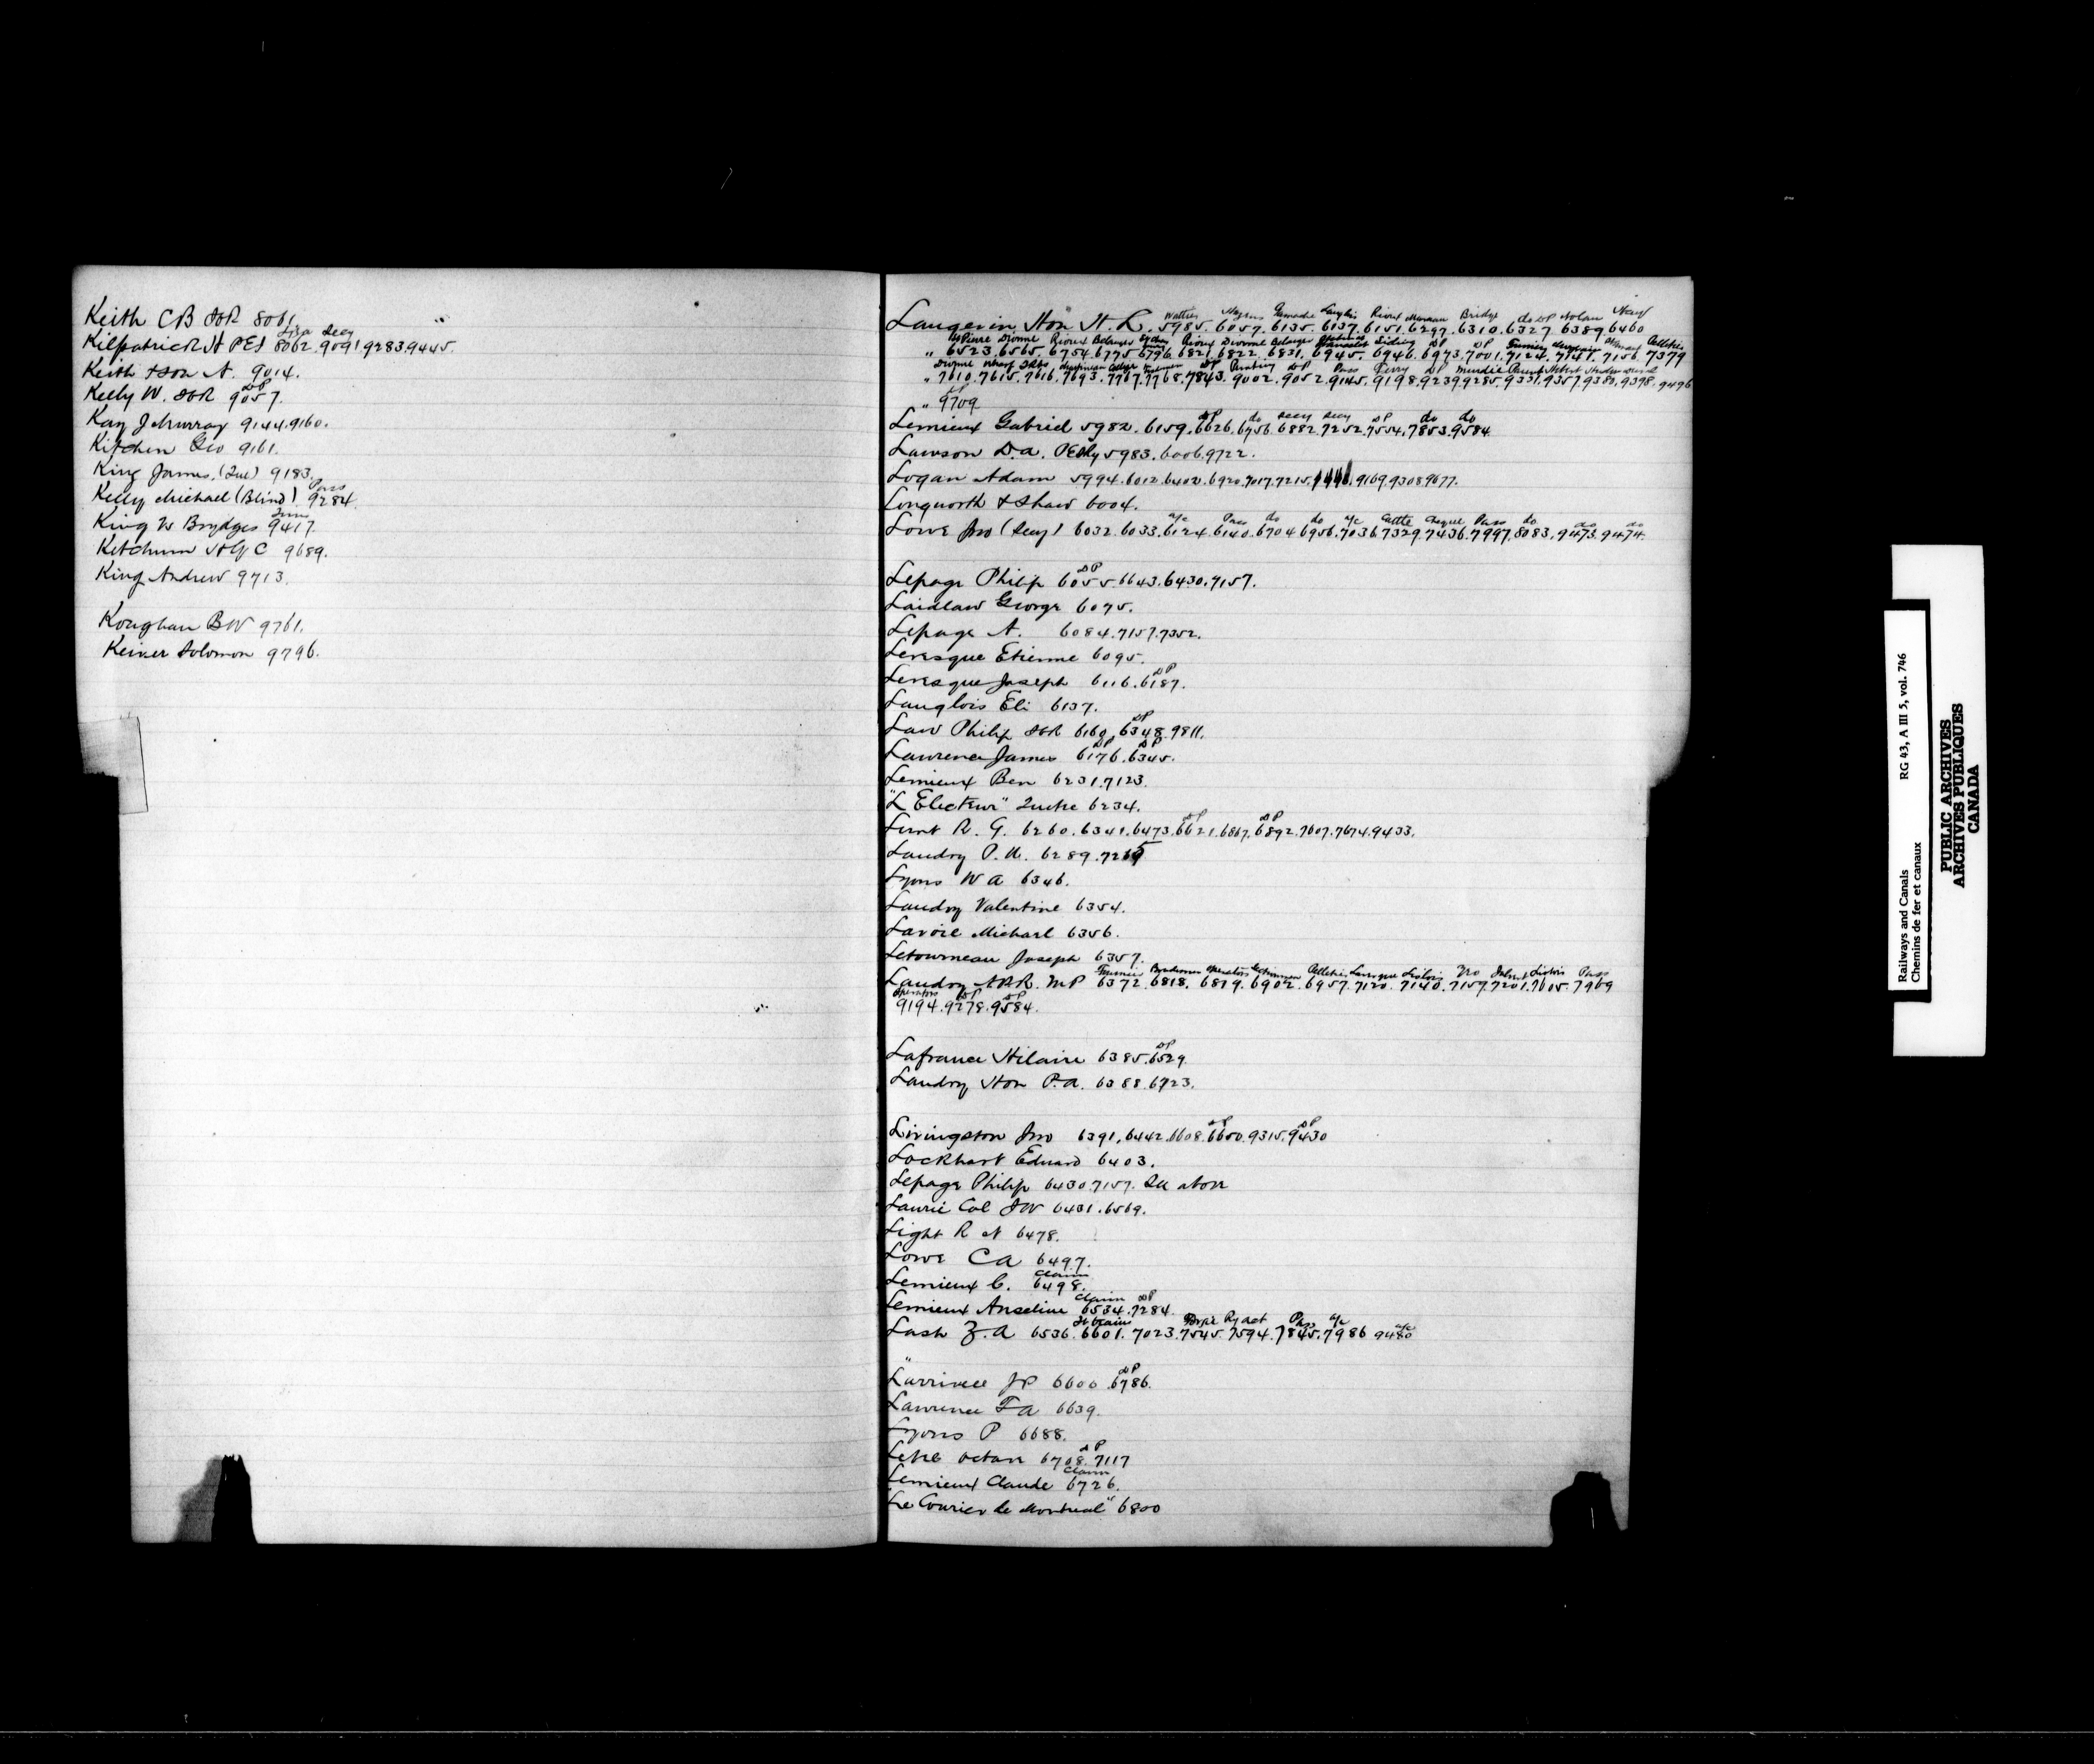 Keith CB ICR 8061
Liza Secy
Kilpatrick A PEI 8062.9091 9283.9445.
Keith & Son A. 9014.
DP
Kelly W. ICR 9057.
Kay J Murray 9144.9160.
Kitchen Geo 9161.
King James, (Que) 9183.
Pass
Kelly Michael (Blind) 9284.
King W Brydges 9417
Ketchum H G C 9689.
King Andrew 9713.
BW 9761.
Keiver Solomon 9796.
Langevin Hon H. L. 5985. 6057. 6135. 6137. 6151. 6297. 6310. 6327. 6389. 6460
" 6523. 6565. 6754. 6775 6796. 6821. 6822. 6831. 6945. 6946. 6973. 7001. 7124. 7141. 7156 7379
" 7610. 7615. 7616. 7693. 7767. 7768. 7843. 9002. 9052. 9145. 9198. 9239 9285. 9331. 9357. 9380. 9398. 9496
" 9709
DP do Secy Secy DP do do
Lemieux Gabriel 5982. 6159. 6626. 6756. 6882. 7252. 7554. 7853. 9584
Lawson D.A. 5983. 6006. 9722.
Logan Adam 5994. 6012. 6402. 6920. 7017. 7215. 9169. 9308 9677.
Longworth & Shaw 6004.
a/c Pass do do a/c Cattle Cheque Pass do do do
Lowe Jno (Secy) 6032. 6033. 6124. 6140. 6704 6956. 7036. 7329. 7436. 7997. 8083. 9473. 9474.
DP
Lepage Philip 6055. 6643. 6430. 7157.
Laidlaw George 6075.
Lepage A. 6084. 7157. 7352.
Levesque Etienne 6095.
DP
Levesque Joseph 6116. 6187.
Langlois Eli 6137.
DP
Law Philip ICR 6160. 6348. 9811.
DP DP
Lawrence James 6176. 6345.
Lemieux Ben 6231. 7123.
"L'Electeur" Quebec 6234.
DP DP
Lunt R. G. 6260. 6341. 6473. 6621. 6867. 6892. 7607. 7674. 9433.
Landry P. A. 6289.
Lyons W A 6346.
Landry Valentine 6354.
Lavoie Michael 6356.
Letourneau Joseph 6357.
Landry A P R. MP 6372. 6818. 6819. 6902. 6957. 7120. 7140. 7157. 7201. 7605. 7969
Operators DP DP
9194. 9278. 9584.
DP
Lafrance Hilaire 6385. 6529.
Landry Hon P.A. 6388. 6723.
DP DP
Livingston Jno 6391. 6442. 6608. 6650. 9315. 9430
Lockhart Edward 6403.
Lepage Philip 6430. 7157. See above
Laurie Col JW 6431. 6569.
Light R A 6478.
Lowe CA 6497.
Claim
Lemieux C. 6498.
Claim DP
Lemieux Anselime 6534. 7284.
Ry act Pass a/c a/c
Lash Z.A 6536. 6601. 7023. 7545. 7594. 7845. 7986 9480
DP
Larrivee JP 6606. 6786.
Lawrence F A 6639.
Lyons P 6688.
DP
Octave 6708. 7117
Claim
Lemieux Claude 6726.
Le Courier de Montreal" 6800
Railways and Canals RG 43, A III 5, vol. 746
Chemins de fer et canaux
PUBLIC ARCHIVES
ARCHIVES PUBLIQUES
CANADA